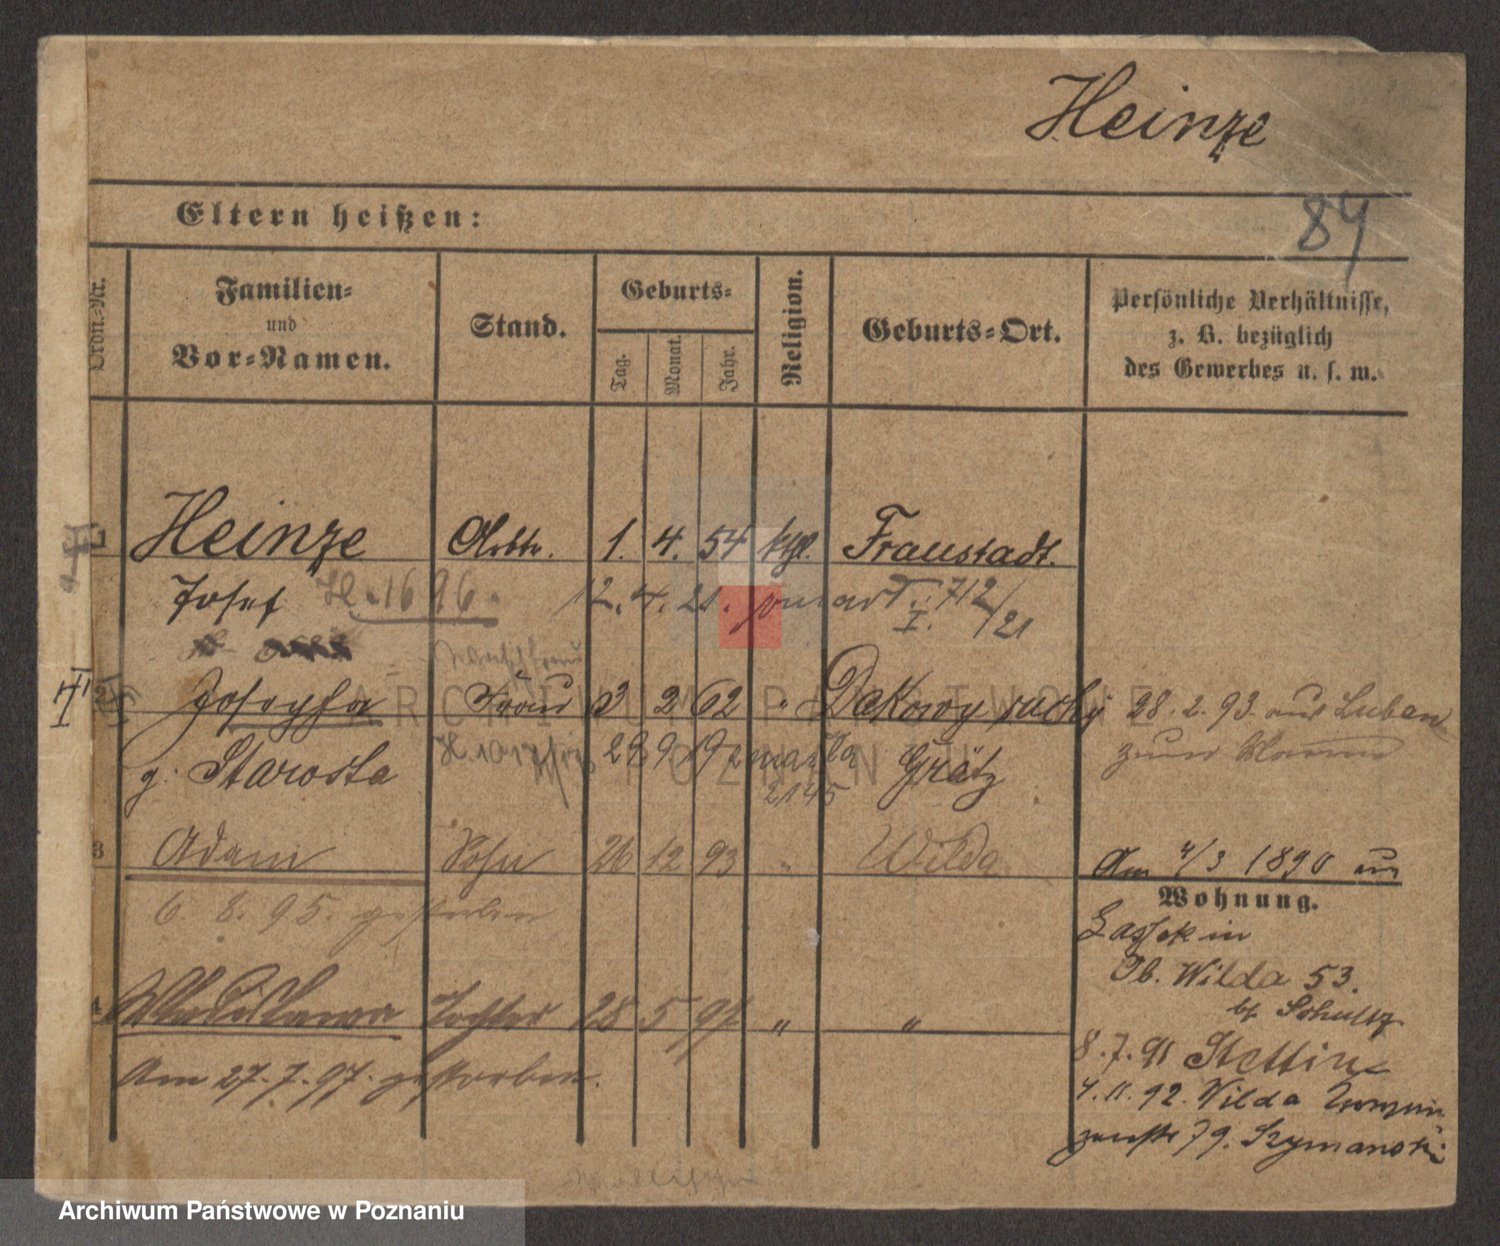 Heinze
84
Eltern heißen:
Ordn.-Nr.
Familien-
und
Vor-Namen.
Stand.
Geburts-
Tag.
Monat.
Jahr.
Religion.
Geburts-Ort.
Persönliche Verhältnisse,
z. B. bezüglich
des Gewerbes u. s. w.
1 Heinze Arbtr. 1. 4. 54 ktgl. Fraustadt.
Josef 12. 4. 21. I. 712/21
2 Josepha Frau 3 2 62 " Dakowy suchy 28. 2. 93. aus Luban
g. Starosta 29 9 19 Grätz zum Mann
2145
3 Adam Sohn 26 12 93 " Wilda
6. 8. 95. gestorben
4 Wladislawa Tochter 28 5 97 " "
Am 27. 7. 97. gestorben.
Am 4/3 1890 in
Wohnung.
Lassek in
Ob. Wilda 53.
bf. Schultz
8. 7. 91 Stettin
4. 11. 92. Wilda
79. Szymanski
ARCHIWUM PAŃSTWOWE
POZNAŃ
Archiwum Państwowe w Poznaniu